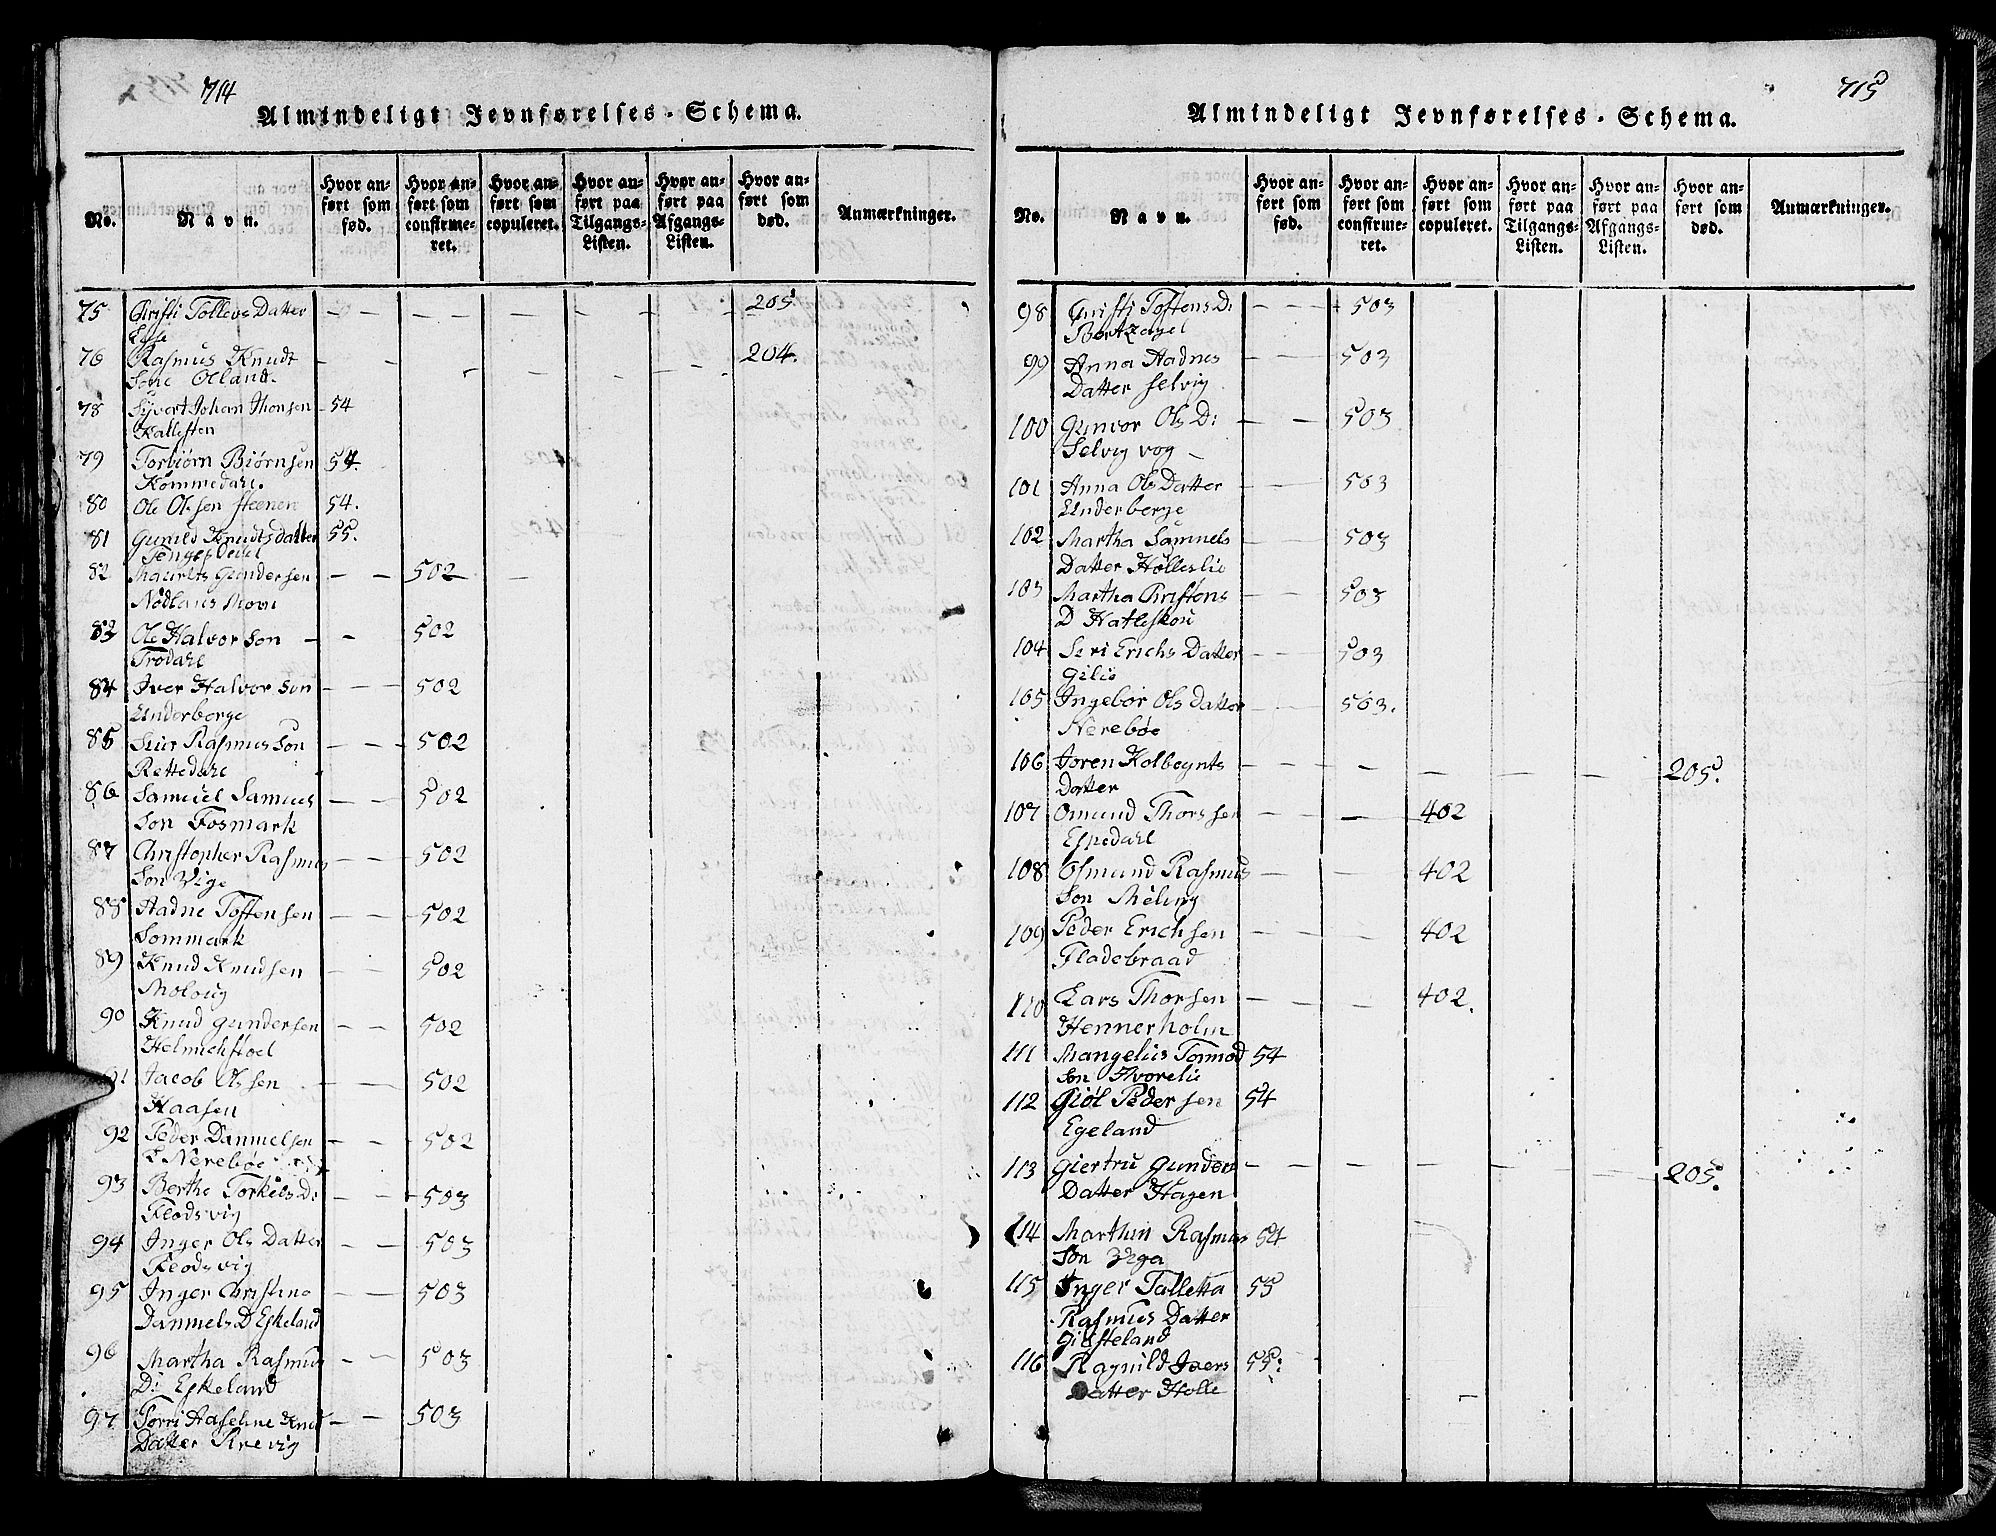 714
Almindeligt Jevnførelses-Schema.
No.
Navn.
Hvor anført som fød.
Hvor anført som confirmeret.
Hvor anført som copuleret.
Hvor anført paa Tilgangs-Listen.
Hvor anført paa Afgangs-Listen.
Hvor anført som død.
Anmærkninger.
75 Christi Tollevs Datter — — — — — 205
76 Rasmus Knudt — — — — — 204.
Sone Oland.
78 Syvert Johan Thonsen 54
Kallesten
79 Torbiørn Biørnsen 54
Kommedahl.
80 Ole Olsen Steenen 54.
81 Gunild Knudts datter 55.
82 Maurits Gundersen — — 502 —
Nødlans Moen
83 Ole Halvor Son — — 502
Trodahl
84 Iver Halvor Son — — 502
Underberge
85 Siur Rasmus Son — — 502
Rettedahl
86 Samuel Samuels — — 502
Son Fosmark
87 Christopher Rasmus — — 502
Son Vige
88 Aadne Tostensen — — 502
Sommark
89 Knud Knudsen — — 502
Molaug
90 Knud Gundersen — — 502
Helmichstoel
91 Jacob Olssen — — 502
Haasen
92 Peder Danmelsen — — 502
Nerebøe
93 Berthe Torkels D: — — 503
Flodsvig
94 Inger Ols Datter — — 503
Flodsvig
95 Inger Christine — — 503
Danmels D Eskeland
96 Martha Rasmus — — 503
D: Eskeland
97 Torri Aaseline Knud — — 503
Datter Krevig
715
Almindeligt Jevnførelses-Schema.
No.
Navn.
Hvor anført som fød.
Hvor anført som confirmeret.
Hvor anført som copuleret.
Hvor anført paa Tilgangs-Listen.
Hvor anført paa Afgangs-Listen.
Hvor anført som død.
Anmærkninger.
98 Christi Tostens D: — — 503
99 Anna Aadnes — — 503
Datter Selvig
100 Gunvor Ols D: — — 503
Selvig vog —
101 Anna Ols Datter — — 503
Underberge
102 Martha Samuels — — 503
Datter Hølleslie
103 Martha Christens — — 503
D Hatleskou
104 Siri Erichs Datter — — 503
Gilie
105 Ingebor Ols datter — — 503.
Nerebøe
106 Joren Kolbeynts — — — — — 205.
Datter
107 Omund Thorssen — — 402
Espedahl
108 Osmund Rasmus — — 402
Son Meling
109 Peder Erichsen — — 402
Fladebraad
110 Lars Thorsen — — 402.
Hennerholm
111 Mangelius Tormod 54
Son Kvorelie
112 Giøl Pedersen 54
Egeland
113 Giertru Gunders — — — — — 205.
Datter Hagen
114 Marthin Rasmus 54
Son Vega
115 Inger Talletta 55
Rasmus Datter
Giesteland
116 Ragnild Ivers 55:
Datter Holle